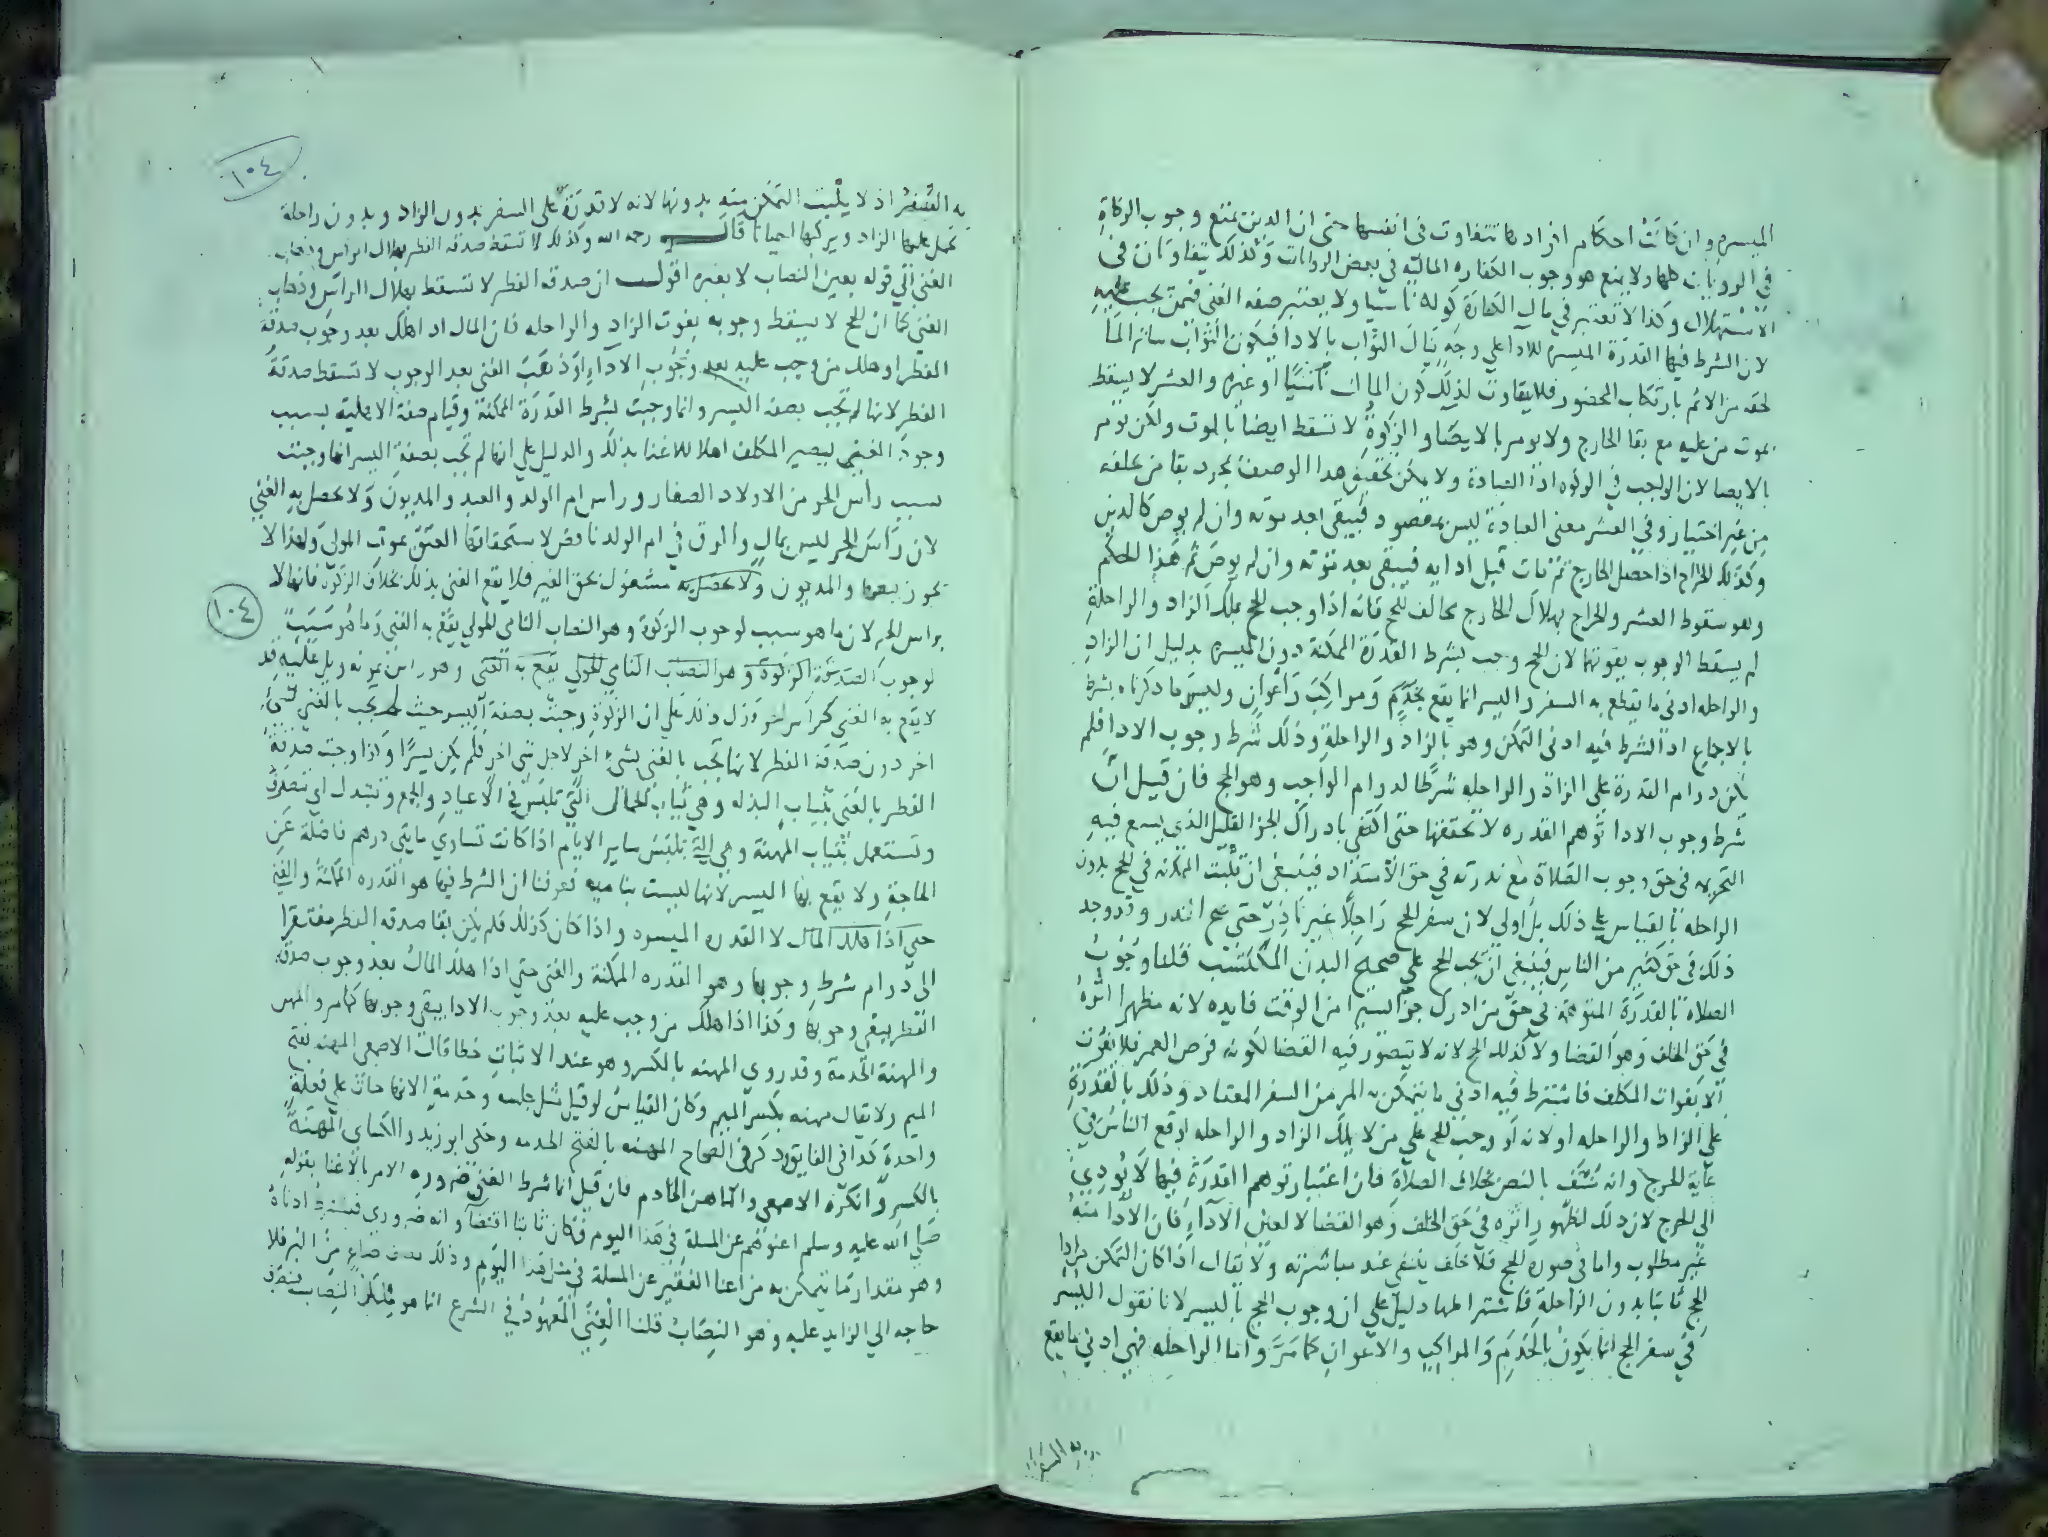 الميسره وان كانت احكام افراد هما تتفاوت في انفسها حتى ان الدين يمنع وجوب الزكاة
في الروايات كلها ولا يمنع هو وجوب الكفاره الماليه في بعض الروايات وكذلك يتفاوتان في
الاستهلاك وكذا لا تعتبر في مال الكفارة كونه ناميا ولا يعتبر صفه الغنى فيمن يجب عليه
لان الشرط فيها القدرة الميسره للاداء على وجه ينال الثواب بالاداء فيكون الثواب ساترا لما
لحقه من الاثم بارتكاب المحضور فلا يتفاوت لذلك كون المال ناميا او غيره والعشر لا يسقط
بموت من عليه مع بقا الخارج ولا يومر بالايصا والزكوة لا تسقط ايضا بالموت ولكن يومر
بالايصا لان الواجب في الزكوه اذا العبادة ولا يمكن تحقيق هذا الوصف بمجرد بقا من يخلفه
من غير اختيار وفي العشر معنى العبادة ليس بمقصود فيبقى بعد موته وان لم يوص كالدين
وكذلك الخراج اذا حصل الخارج ثم مات قبل ادايه فيبقى بعد موته وان لم يوص ثم هذا الحكم
وهو سقوط العشر والخراج بهلاك الخارج يخالف الحج فانه اذا وجب الحج بملك الزاد والراحلة
لم يسقط الوجوب بفوتهما لان الحج وجب بشرط القدرة الممكنة دون الميسره بدليل ان الزاد
والراحله ادنى ما يقطع به السفر واليسر انما يقع بخدم ومراكب واعوان وليس ما ذكرناه بشرط
بالاجماع اذ الشرط فيه ادنى التمكن وهو بالزاد والراحلة وذلك شرط وجوب الادا فلم
يكن دوام القدرة على الزاد والراحله شرطا لدوام الواجب وهو الحج فان قيل ان
شرط وجوب الادا توهم القدره لا تحققها حتى اكتفى بادراك الجزا القليل الذي يسع فيه
التحريمه في حق وجوب الصلاة مع ندرته في حق الاستناد فينبغي ان تثبت المكنه في الحج بدون
الراحله بالقياس على ذلك بل اولى لان سفر الحج راجلا غير نادر حتى صح النذر وقد وجد
ذلك في حق كثير من الناس فينبغي ان يجب الحج على صحيح البدن المكتسب قلنا وجوب
الصلاة بالقدرة المتوهمة في حق من ادرك جزا يسيرا من الوقت فايده لانه مظهر اثره
في حق الخلف وهو القضا ولا كذلك الحج لانه لا يتصور فيه القضا لكونه فرض العمر فلا يفوت
الا بفوات المكلف فاشترط فيه ادنى ما يتمكن به المر من السفر المعتاد وذلك بالقدرة
على الزاد والراحله او لانه لو وجب الحج على من لا يملك الزاد والراحله اوقع الناس في
غاية الحرج وانه منتف بالنص بخلاف الصلاة فان اعتبار توهم القدرة فيها لا يودي
الى الحرج لان ذلك لظهور اثره في حق الخلف وهو القضا لا لعين الاداء فان الادا منه
غير مطلوب واما في صوره الحج فلا خلف ينتفي عند مباشرته ولا يقال اذا كان التمكن من اداء
الحج ثابتا بدون الراحلة فاشتراطها دليل على ان وجوب الحج باليسر لانا نقول اليسر
في سفر الحج انما يكون بالخدم والمراكب والاعوان كما مر واما الراحله فهي ادنى ما يقع
به السفر
١٠٤
به السفر اذ لا يثبت التمكن منه بدونها لانه لا قدرة على السفر بدون الزاد وبدون راحلة
تحمل عليها الزاد ويركبها احيانا قال رحمه الله وكذلك لا تسقط صدقه الفطر بهلاك الراس وذهاب
الغنى الى قوله بعين النصاب لا بغيره اقول ان صدقه الفطر لا تسقط بهلاك الراس وذهاب
الغنى كما ان الحج لا يسقط وجوبه بفوت الزاد والراحله فان المال اذا هلك بعد وجوب صدقة
الفطر او هلك من وجب عليه بعد وجوب الاداء او ذهب الغنى بعد الوجوب لا تسقط صدقة
الفطر لانها لم تجب بصفه اليسر وانما وجبت بشرط القدرة الممكنة وقيام صفة الاهلية بسبب
وجود الغنى ليصير المكلف اهلا للاغنا بذلك والدليل على انها لم تجب بصفة اليسر انها وجبت
بسبب رأس الحر من الاولاد الصغار وراس ام الولد والعبد والمديون ولا يحصل به الغنى
لان راس الحر ليس بمال والرق في ام الولد ناقص لاستحقاقها العتق بموت المولى ولهذا لا
يجوز بيعها والمديون ولا يحصل به مشغول بحق الغير فلا يقع الغنى بذلك بخلاف الزكوة فانها لا
١٠٤
براس الحر لان ما هو سبب لوجوب الزكوة وهو النصاب النامي الحولي يقع به الغنى وما هو سبب
لوجوب الصدقة الزكوة وهو النصاب النامي الحولي يقع به الغنى وهو راس يمونه ويلي عليه قد
لا يقع به الغنى كراس الحر ودل ذلك على ان الزكوة وجبت بصفة اليسر حيث لم تجب بالغنى بشيء
اخر دون صدقة الفطر لانها تجب بالغنى بشيء اخر لاجل شي اخر فلم يكن يسرا وكذا وجبت صدقة
الفطر بالغنى بثياب البذله وهي ثياب الجمال التي تلبس في الاعياد والجمع وتبتدل اي تتصرف
وتستعمل بثياب المهنة وهي التي تلبس ساير الايام اذا كانت تساوي مايتى درهم فاضلة عن
الحاجة ولا يقع بها اليسر لانها ليست بناميه فعرفنا ان الشرط فيها هو القدره الممكنة والغنى
حتى اذا هلك المال لا القدره الميسره واذا كان كذلك فلم يكن بقا صدقه الفطر مفتقرا
الى دوام شرط وجوبها وهو القدره الممكنة والغنى حتى اذا هلك المال بعد وجوب صدقة
الفطر يبقى وجوبها وكذا اذا هلك من وجب عليه بعد وجوب الادا يبقى وجوبها كما مر والمهن
والمهنة الخدمة وقد روي المهنه بالكسر وهو عند الاثبات خطا قال الاصمعي المهنه بفتح
الميم ولا يقال مهنه بكسر الميم وكان القياس لو قيل مثل جلسه وخدمة الا انها جات على فعلة
واحدة كذا في الفايق وذكر في الصحاح المهنه بالفتح الخدمه وحكى ابو زيد والكساى المهنة
بالكسر وانكره الاصمعي والماهن الخادم فان قيل انما شرط الغنى ضروره الامر بالاغنا بقوله
صلى الله عليه وسلم اغنوهم عن المسلة في هذا اليوم فكان ثابتا اقتضآ وانه ضروري فيشترط ادناه
وهو مقدار ما يتمكن به من اغنا الفقير عن المسلة في مثل هذا اليوم وذلك نصف صاع من البر فلا
حاجه الى الزايد عليه وهو النصاب قلنا الغنى المعهود في الشرع انما هو بملك النصاب فينصرف